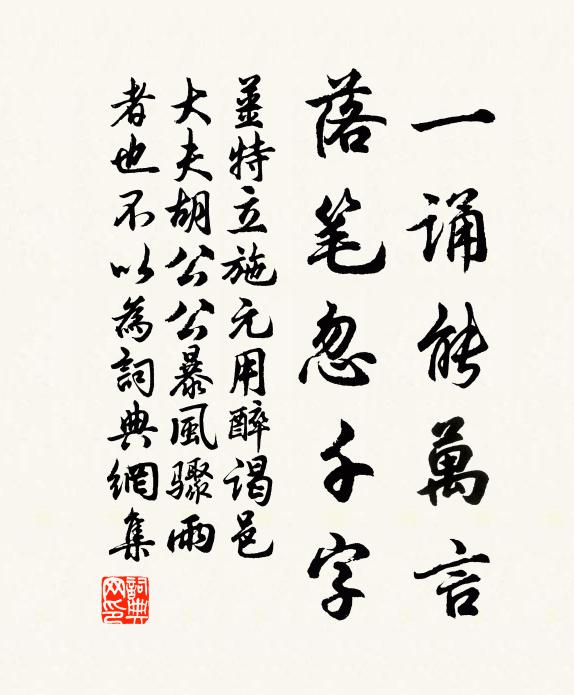 一诵能萬言
落笔忽千字
薑特立施元用醉谒邑
大夫胡公公暴風骤雨
者也不以為詞典網集
詞典
网印